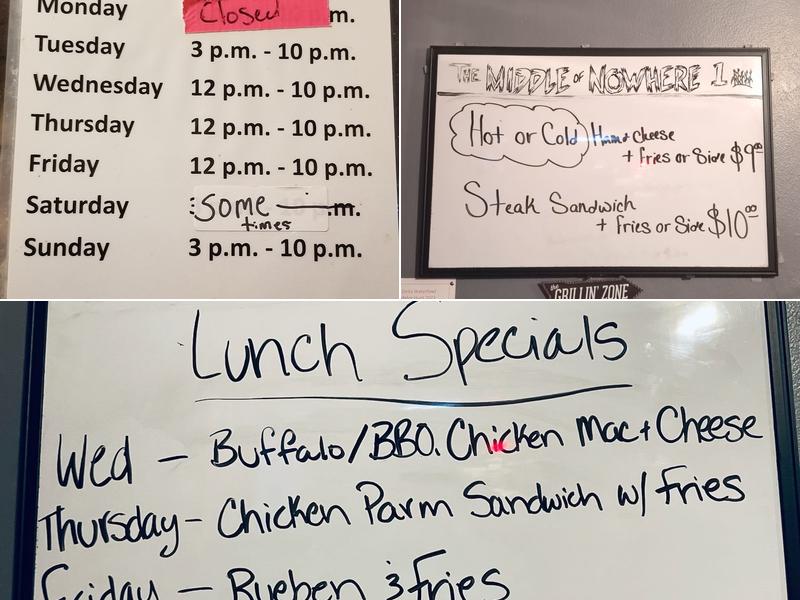 Monday Closed m.
Tuesday 3 p.m. - 10 p.m.
Wednesday 12 p.m. - 10 p.m.
Thursday 12 p.m. - 10 p.m.
Friday 12 p.m. - 10 p.m.
Saturday Some p.m.
times
Sunday 3 p.m. - 10 p.m.
THE MIDDLE OF NOWHERE 1
Hot or Cold Ham + Cheese
+ Fries or Side $9.00
Steak Sandwich
+ Fries or Side $10.00
the
GRILLIN' ZONE
Lunch Specials
Wed - Buffalo/BBQ. Chicken Mac + Cheese
Thursday - Chicken Parm Sandwich w/ Fries
Friday - Rueben & Fries